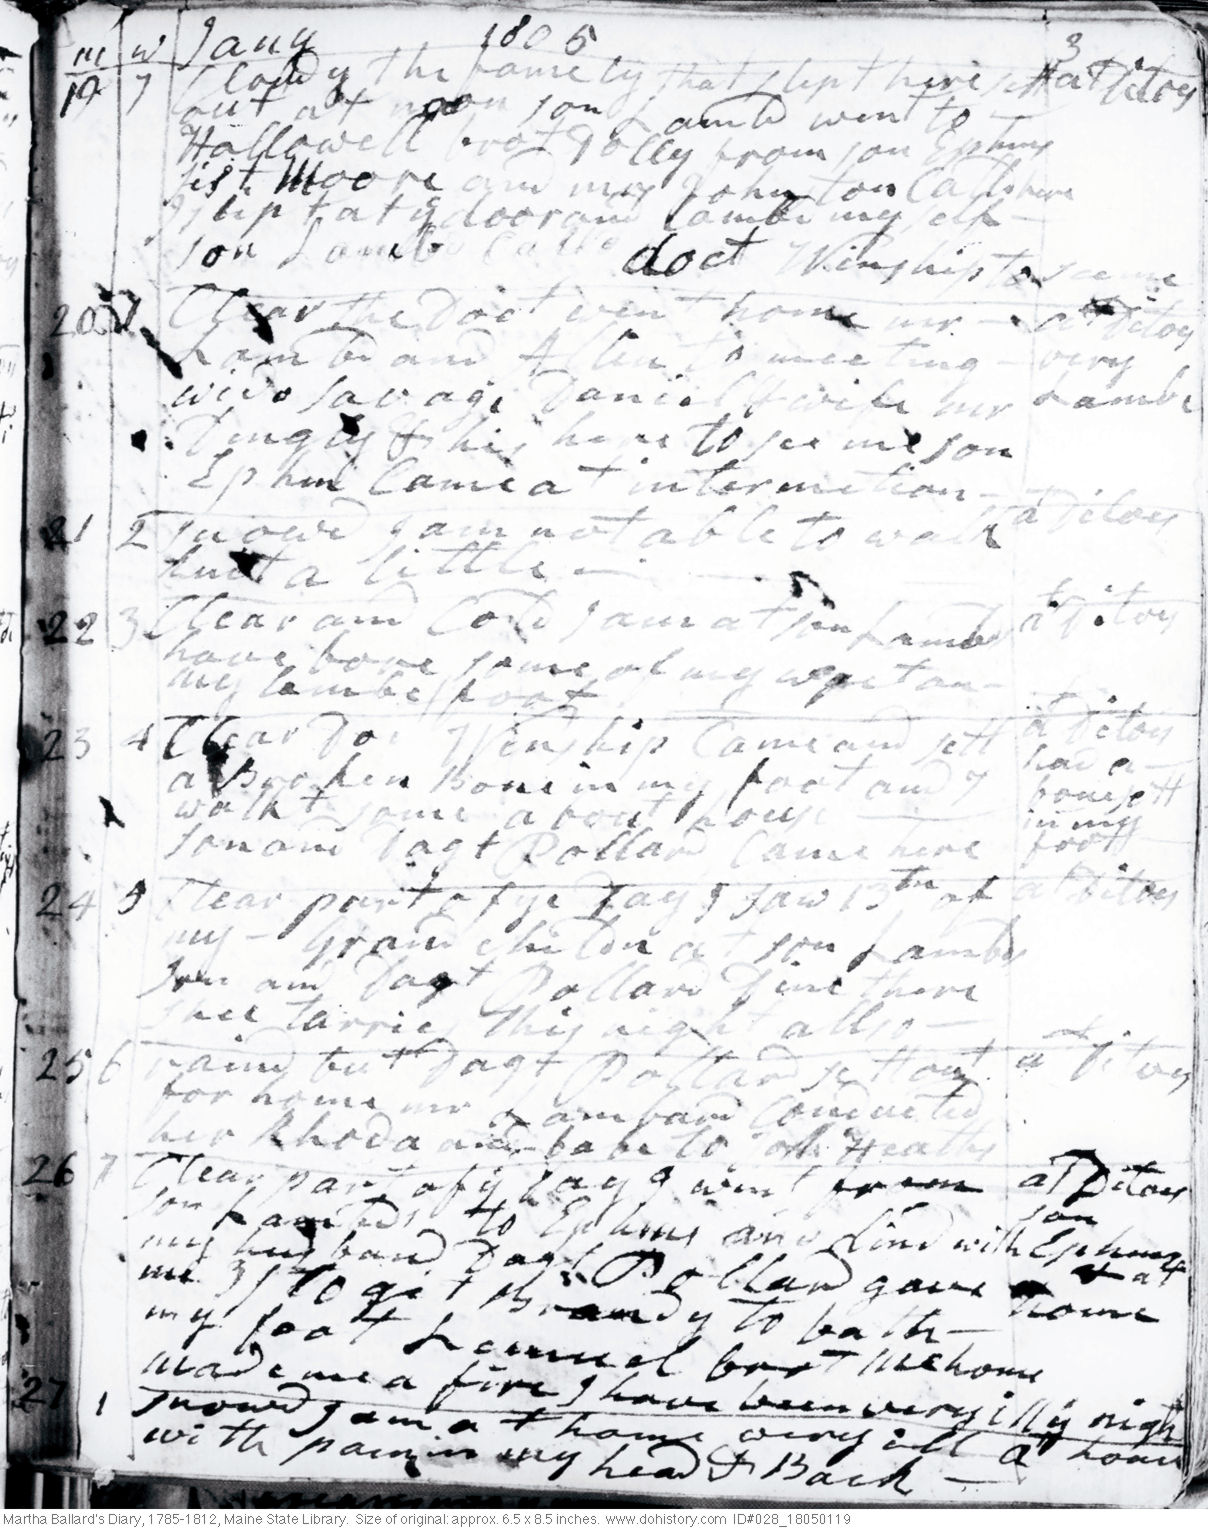 m w Jany 1805 3
19 7 Cloudy the famely that slept here sett at Ditoes
out at noon son Lambd went to
Hallowell brot Dolly from son Ephms
sistr Moore and mrs Johnston Calld here
I slept at ye door and lambe my self
son Lambd Calld doct Winship to see me
20 1 Clear the Doct went home mr at Ditoes
Lambd and Allen to meeting very
wido Savage Daniell & wife mr Lambe
Dingly & his here to see me son
Ephm Came at intermetion
21 2 Snowd I am not able to walk at Ditoes
but a little
22 3 Clear and Cold I am at son Lambds at Ditoes
have bore some of my weight on
my lambe foot
23 4 Clear Doc Winship Came and sett at Ditoes
a Broken Bone in my foot and I had a
walkt some about house bone sett
son and Dagt Pollard Came here in my foott
24 5 Clear part of ye Day I saw 13th of at Ditoes
my Grand Childn at son Lambds
son and Dagt Pollard Dine there
shee tarries this night allso
25 6 raind but Dagt Pollard sett out at Ditoes
for home mr Lambard Conducted
her Rhoda and babe to Heaths
26 7 Clear part of ye Day I went from at Ditoes
son Lambds to Ephms and dind with son Ephms
my husband Dagt Pollard gave & at
me 3/ to git Brandy to bath home
my foot Lemuel brot me home
made me a fire I have been very ill ys night
27 1 Snowd I am at home very ill at home
with pain in my head & Back
Martha Ballard's Diary, 1785-1812, Maine State Library. Size of original: approx. 6.5 x 8.5 inches. www.dohistory.com ID#028_18050119